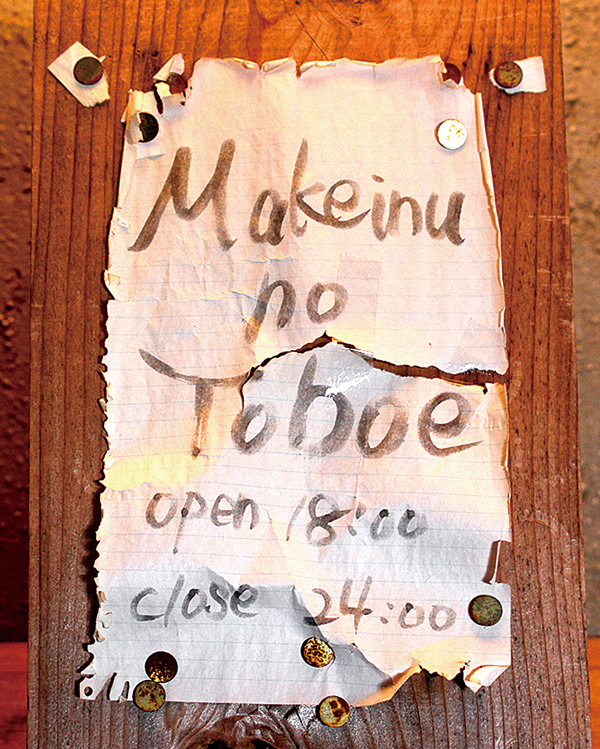 Makeinu
no
Toboe
open 18:00
close 24:00